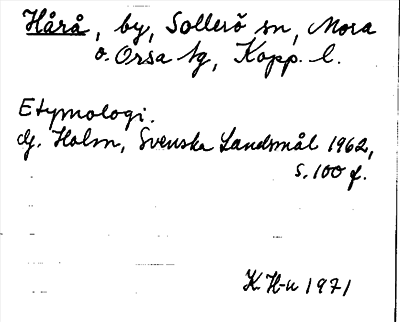 Hårå, by, Sollerö sn, Mora
o. Orsa tg, Kopp. l.
Etymologi.
G. Holm, Svenska Landsmål 1962,
s. 100 f.
K. H-u 1971